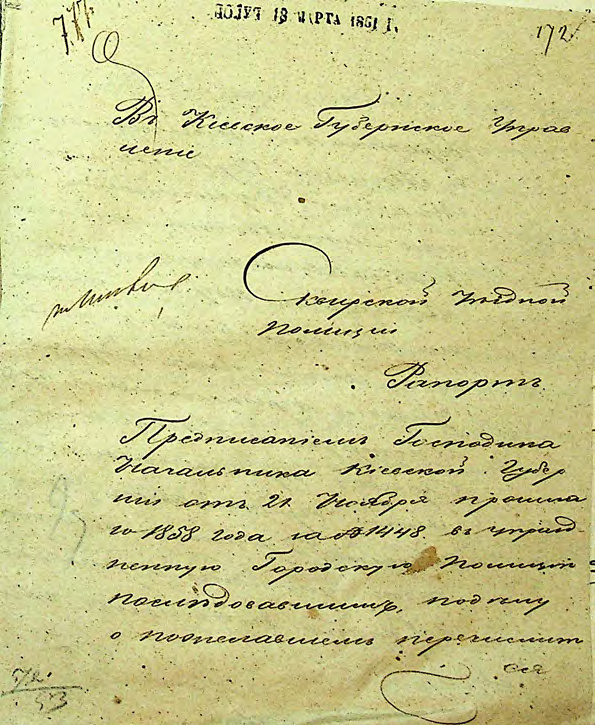 717.
ПОЛУЧ 13 МАРТА 1861 Г.
172
Въ Кіевское Губернское Управ
леніе
Сквирской Уѣздной
Полиціи
Рапортъ
Предписаніемъ Господина
Начальника Кіевской Губер
ніи отъ 21 Ноября прошла
го 1858 года за № 1448 в упразд
ненную Городскую Полицію
последовавшимъ,
о пожелавшемъ перечислит
ся
72
53